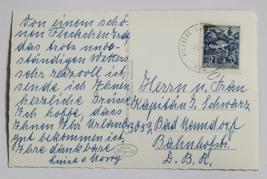 Von einem schö-
nen Fleckchen Erde
das trotz unbe-
ständigen Wetters
sehr reizvoll ist,
sende ich Ihnen
herzliche Grüsse
Ich hoffe, dass
Ihnen Ihr Urlaub
gut bekommen ist,
Ihre dankbare
Herrn u. Frau
Kapitän J. Schwarz
3052 Bad Nenndorf
Bahnhofstr.
D.B.R.